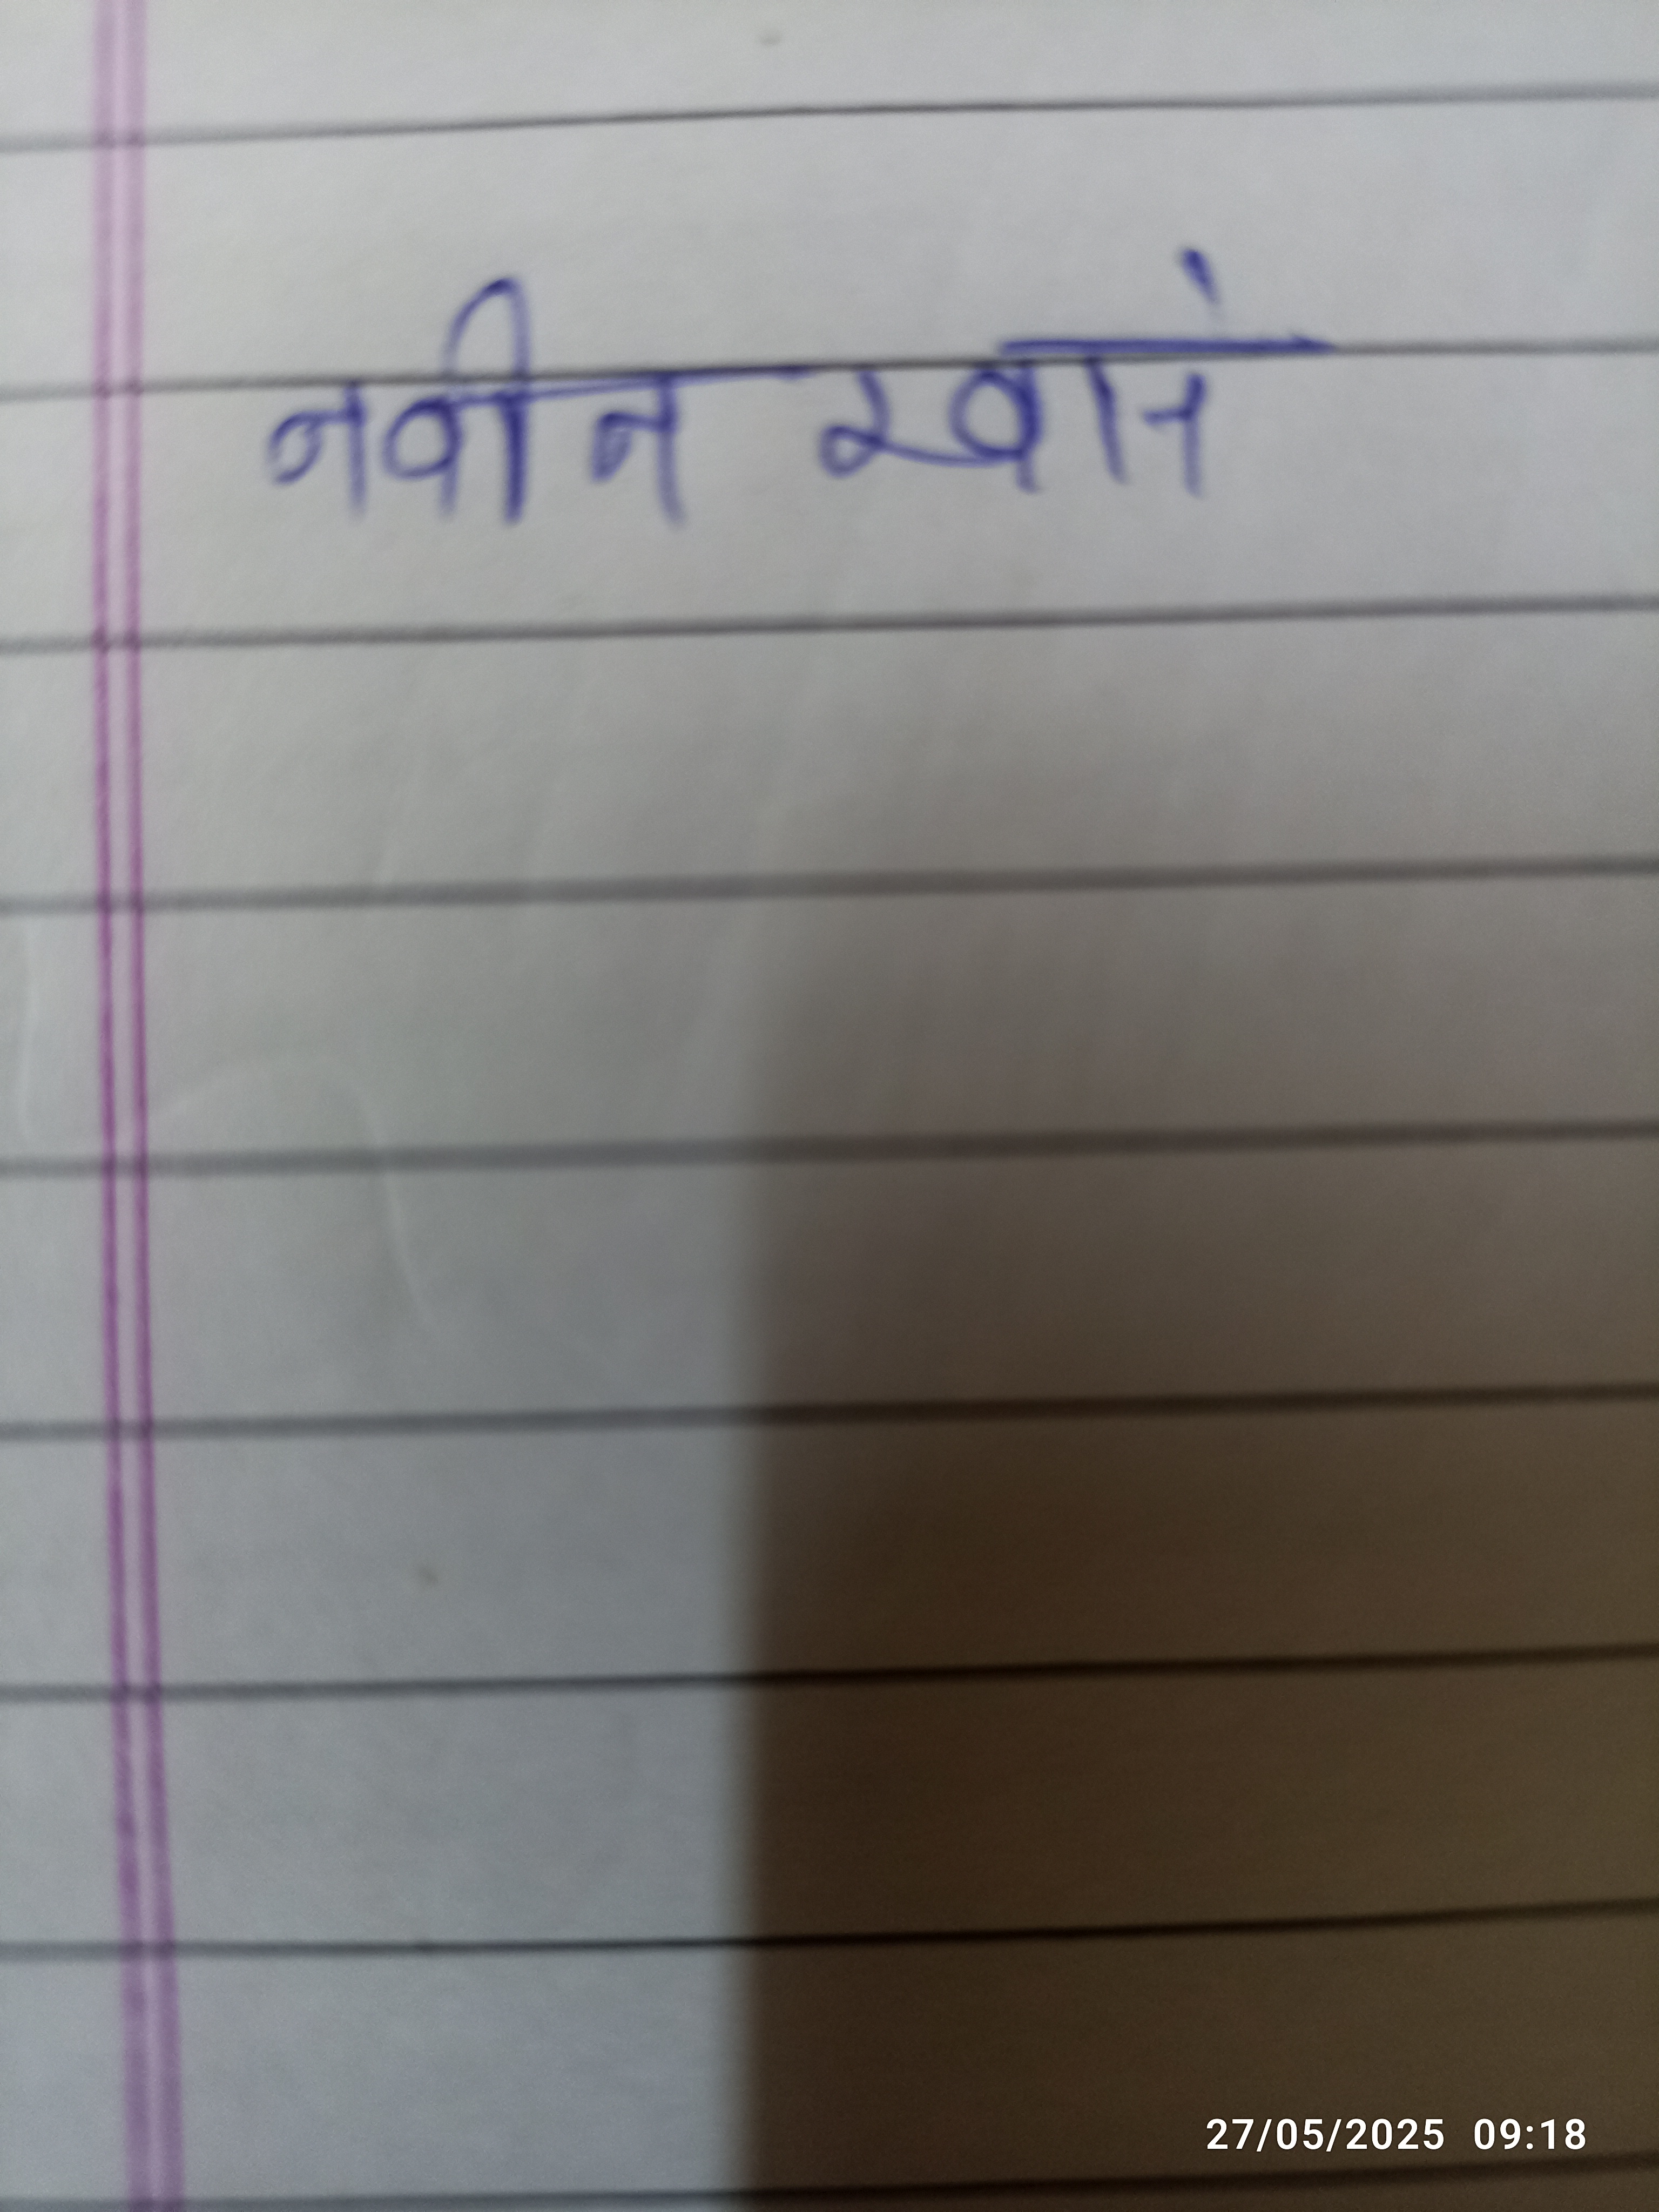 नवीन खाने
27/05/2025 09:18